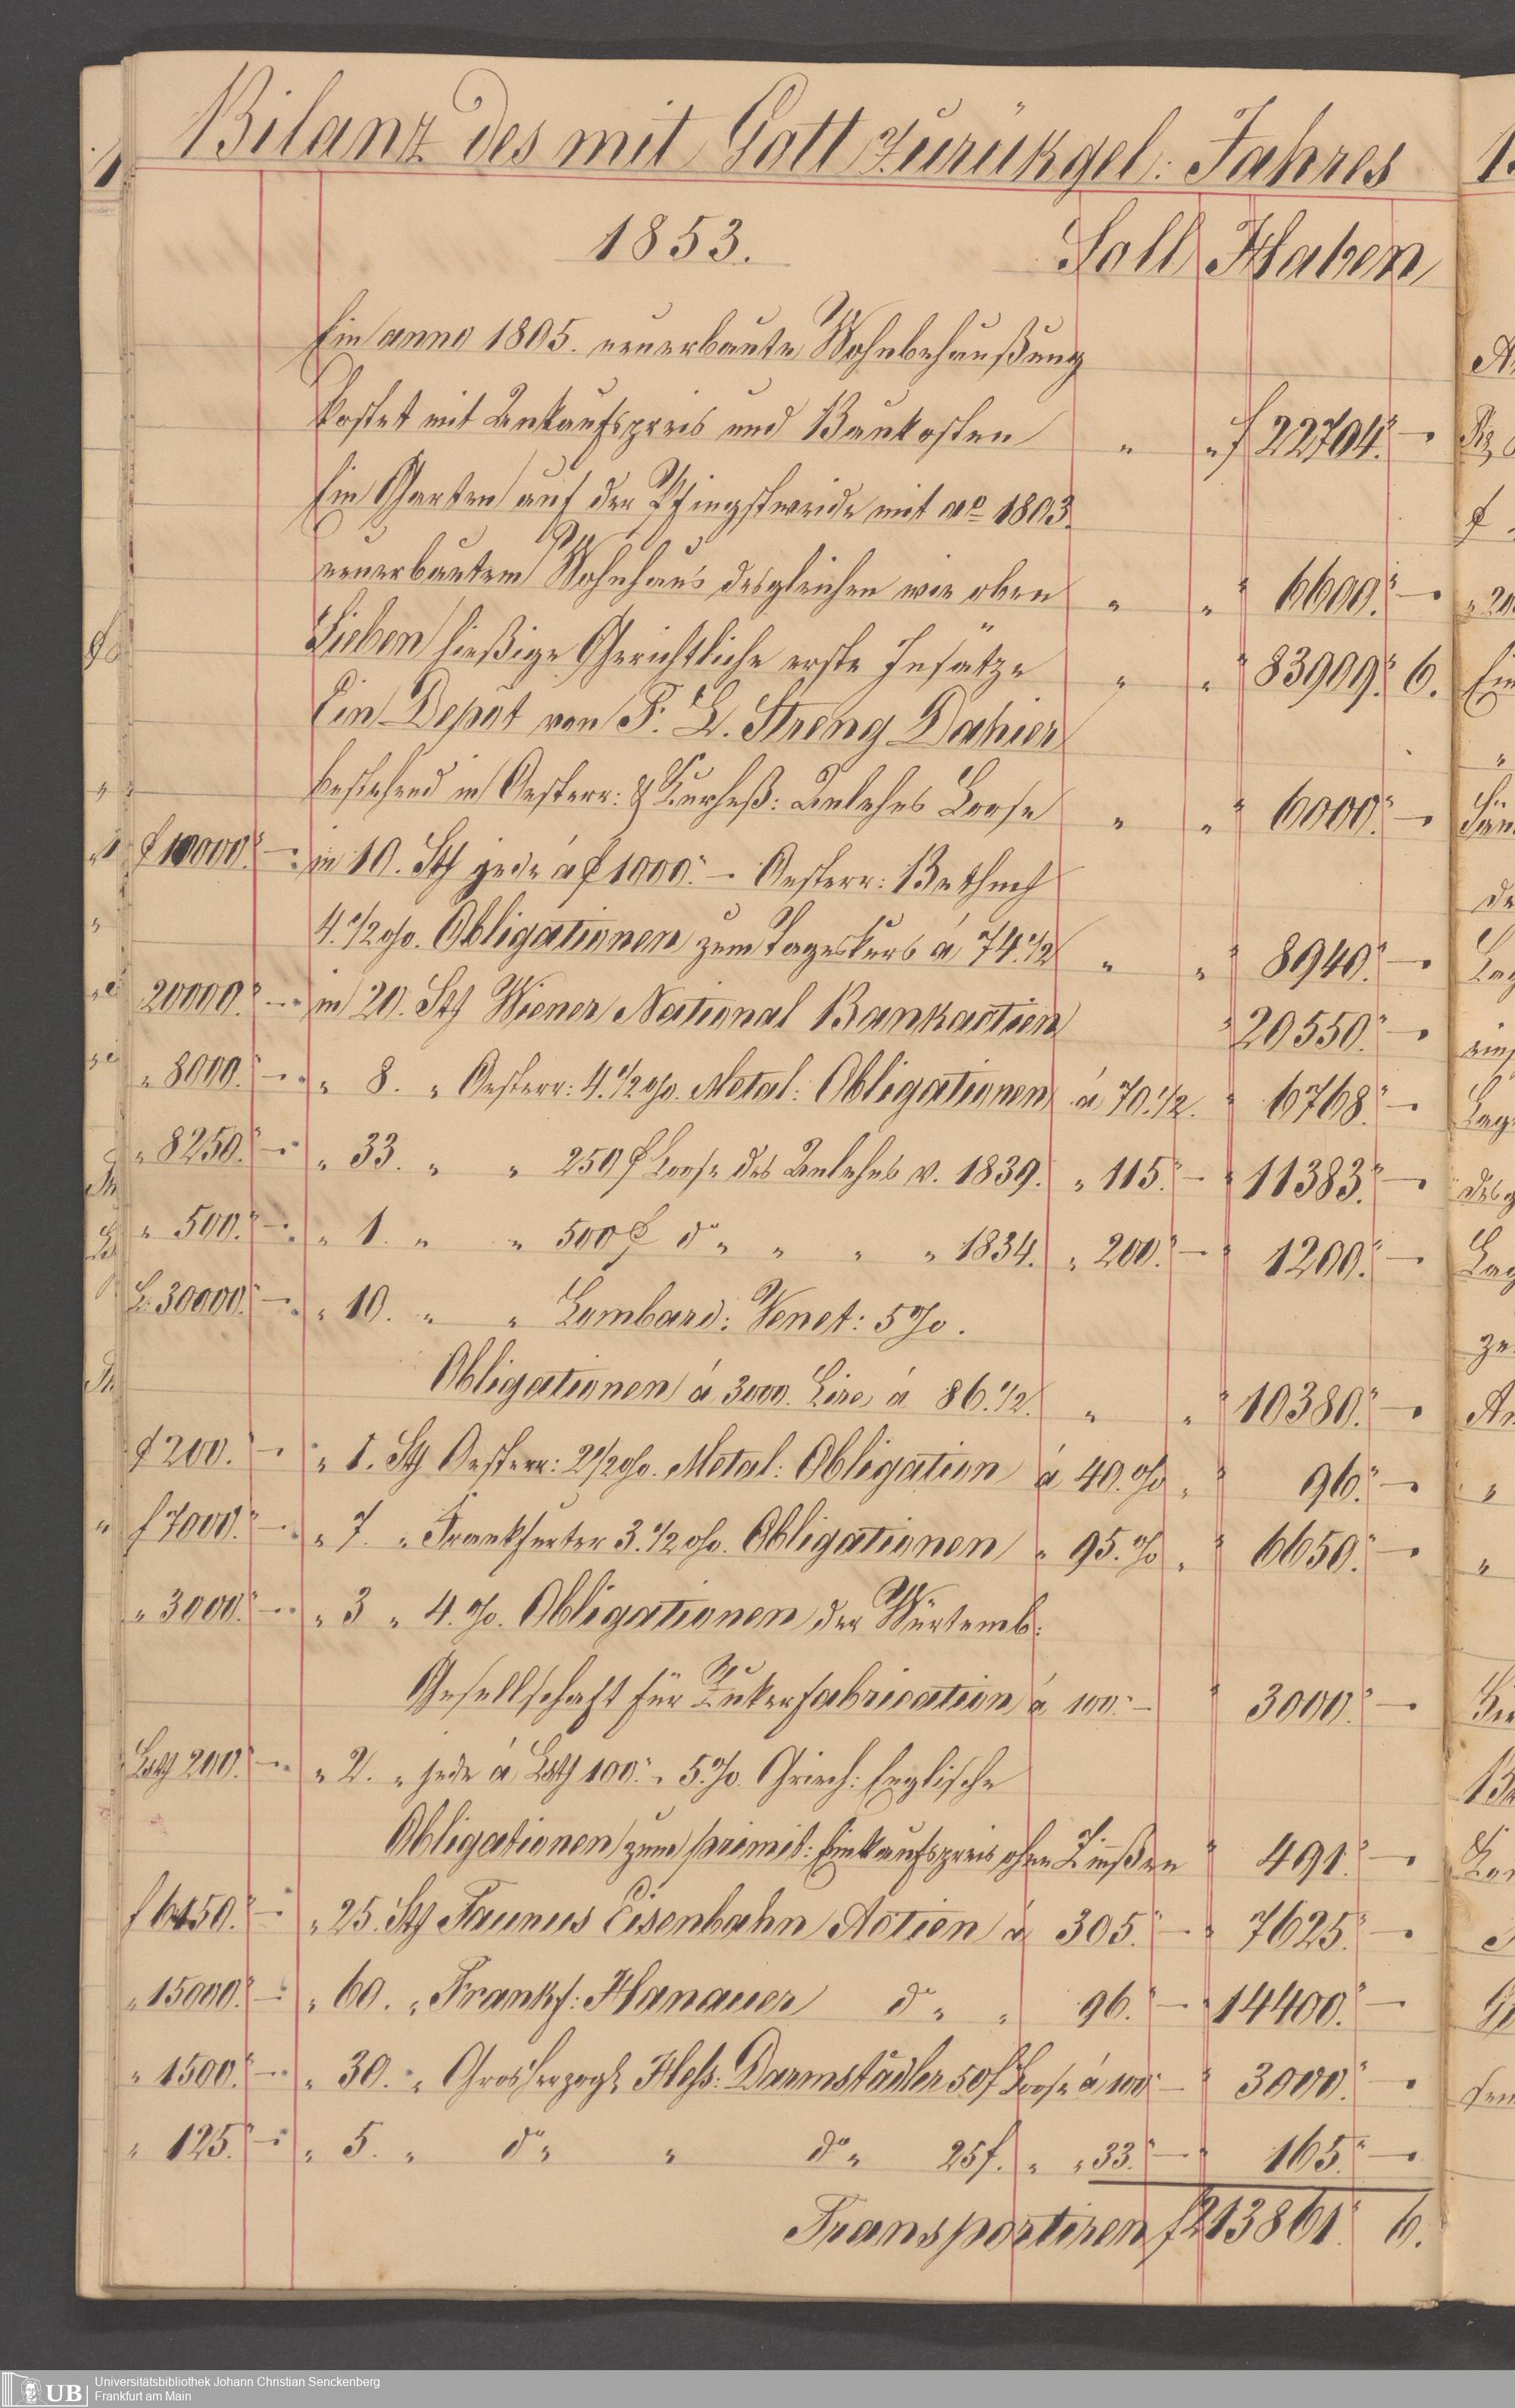 Bilanz des mit Gott zurükgel: Jahres
1853. Soll Haben
Ein anno 1805. neuerbaute Wohnbehaußung
kostet mit Ankaufspreis und Baukosten " " f 22704.–
Ein Garten auf der Pfingstweide mit ao 1803
neuerbautem Wohnhaus desgleichen wie oben " " " 6600.–
Sieben hießige Gerichtliche erste Insätze " " " 83909. 6.
Ein Depot von F. L. Streng Dahier
bestehend in Oesterr: & Kurheß: Anlehns Loose " " " 6000.–
f 10000.– in 10. Stk jede á f 1000.– Oesterr: Bethm
4.1/2 %. Obligationen zum Tageskurs á 74.1/2 " " " 8940.–
20000.– in 20. Stk Wiener National Bankactien " 20550.–
" 8000.– " 8. " Oesterr: 4.1/2 %. Metal: Obligationen á 70.1/2. " 6768.–
" 8250.– " 33. " " 250 f Loose des Anlehns v. 1839. " 115.– " 11383.–
" 500.– " 1. " " 500 f do " " " " 1834. " 200.– " 1200.–
L. 30000.– " 10. " " Lombard: Venet: 5 %.
Obligationen á 3000. Lire á 86.1/2. " " " 10380.–
f 200.– " 1. Stk Oesterr: 2 1/2 %. Metal: Obligation á 40. % " " 96.–
f 7000.– " 7. " Frankfurter 3.1/2 %. Obligationen " 95. % " " 6650.–
" 3000.– " 3 " 4. %. Obligationen der Würtemb:
Gesellschaft für Zukerfabrication á 100.– " 3000.–
Lstg 200.– " 2. " jede á Lstg 100." 5. %. Griech: Englische
Obligationen zum primit: Einkaufspreis ohne Zinßen " 491.–
f 6450.– " 25. Stk Taunus Eisenbahn Actien á 305.– " 7625.–
" 15000.– " 60. " Frankf: Hanauer do " " 96.– " 14400.–
" 1500.– " 30. " Grosherzogl. Hess. Darmstädter 50 f Loose á 100.– " 3000.–
" 125.– " 5. " do " " do " 25 f. " " 33.– " 165.–
Transportiren f 213861. 6.
UB Universitätsbibliothek Johann Christian Senckenberg
Frankfurt am Main